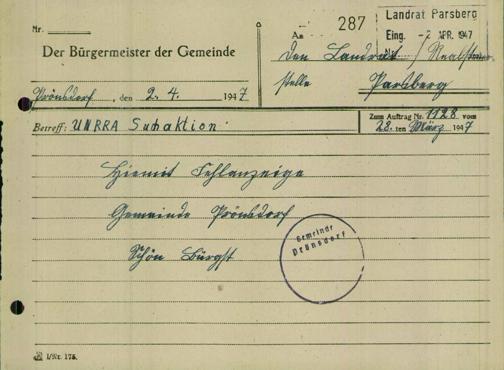 Nr.
Der Bürgermeister der Gemeinde
Prönsdorf, den 2. 4. 1947
An
287
Landrat Parsberg
Eing. -2. APR. 1947
Nr.
den Landrat /
stelle Parsberg
Betreff: UNRRA Suchaktion
Zum Auftrag Nr. 1128 vom
28. ten März 1947
Hiemit Fehlanzeige
Gemeinde Prönsdorf
Schön Bürgst
Gemeinde
Prönsdorf
I/Nr. 175.